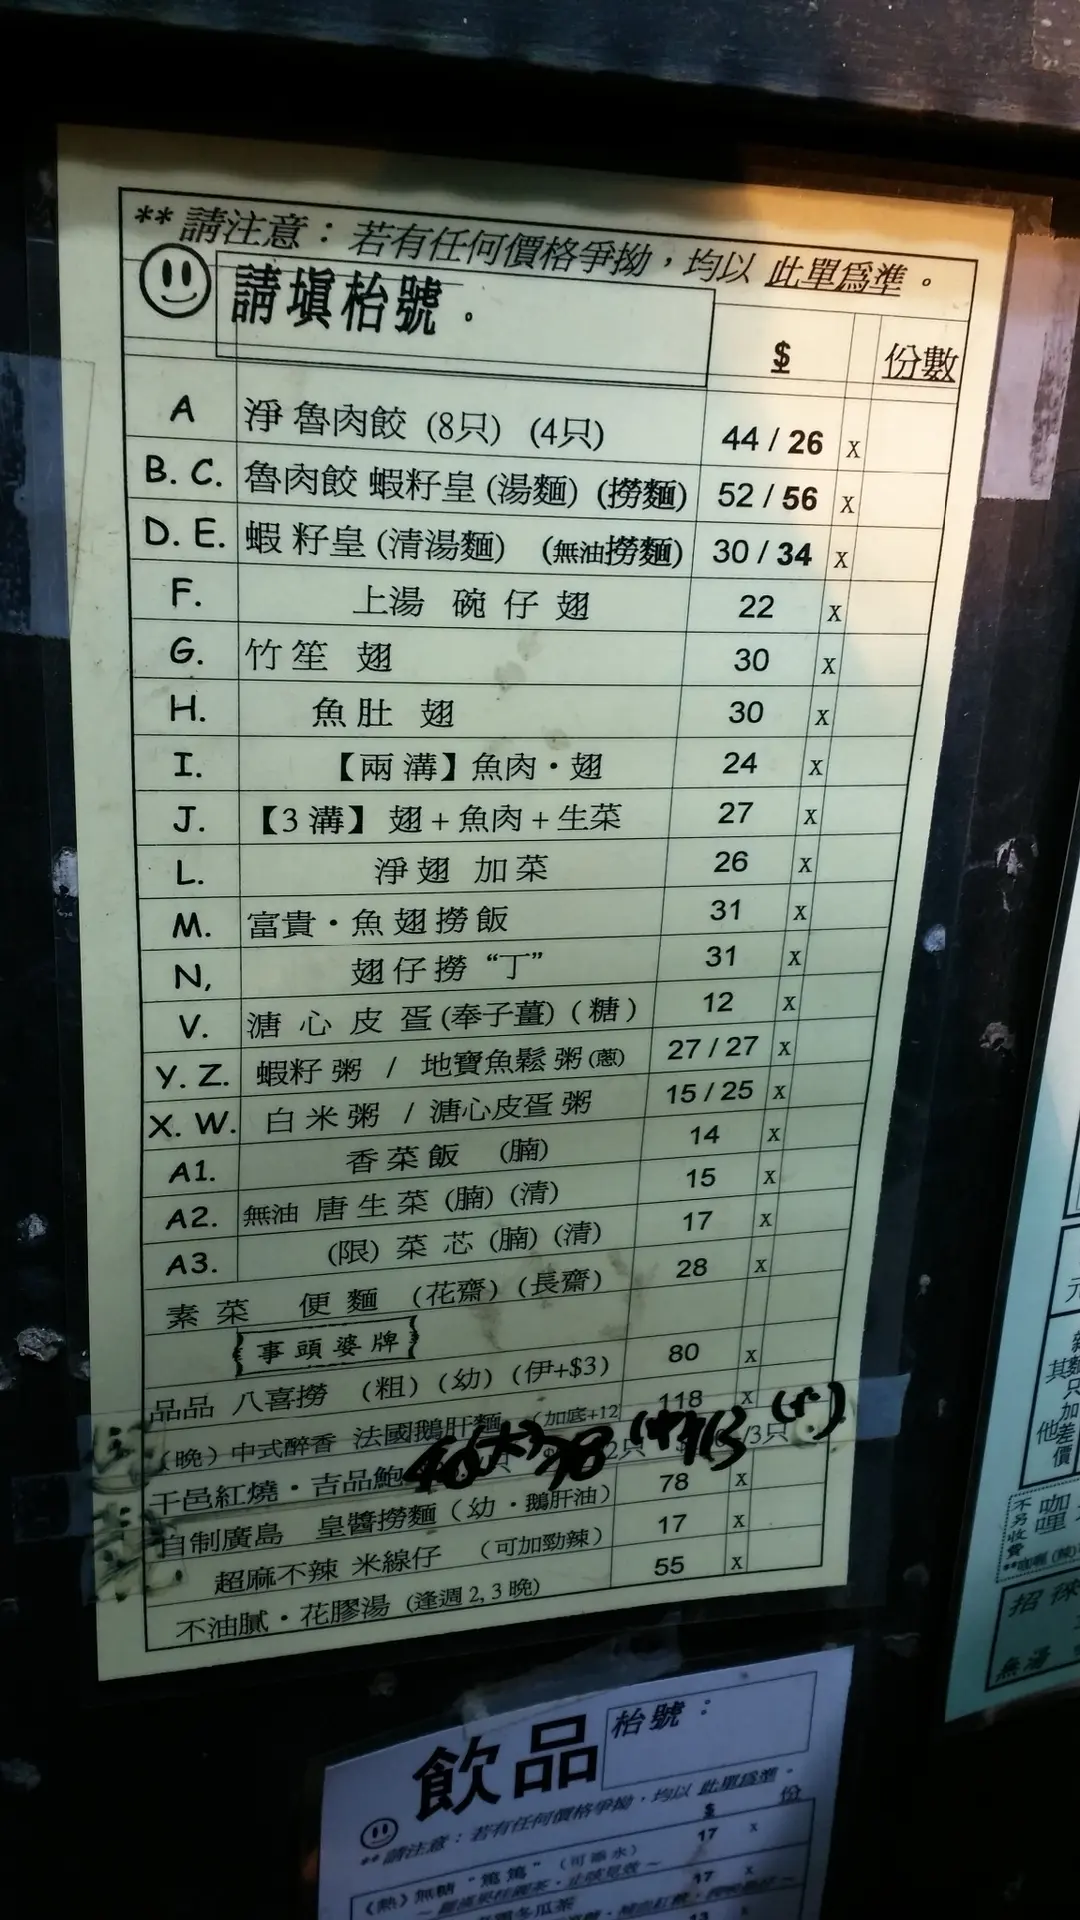 **請注意：若有任何價格爭拗，均以 此單為準。
請填枱號．
$ 份數
A 淨 魯肉餃 (8只) (4只) 44 / 26 x
B. C. 魯肉餃 蝦籽皇 (湯麵) (撈麵) 52 / 56 x
D. E. 蝦 籽皇 (清湯麵) (無油撈麵) 30 / 34 x
F. 上湯 碗 仔 翅 22 x
G. 竹 笙 翅 30 x
H. 魚 肚 翅 30 x
I. 【兩 溝】魚肉・翅 24 x
J. 【3 溝】 翅 + 魚肉 + 生菜 27 x
L. 淨 翅 加 菜 26 x
M. 富貴・魚 翅 撈 飯 31 x
N, 翅 仔 撈 “丁” 31 x
V. 溏 心 皮 蛋 (奉子薑) ( 糖 ) 12 x
Y. Z. 蝦籽 粥 / 地寶魚鬆 粥 (蔥) 27 / 27 x
X. W. 白 米 粥 / 溏心皮蛋 粥 15 / 25 x
A1. 香 菜 飯 (腩) 14 x
A2. 無油 唐 生 菜 (腩) (清) 15 x
A3. (限) 菜 芯 (腩) (清) 17 x
素 菜 便 麵 (花齋) (長齋) 28 x
事 頭 婆 牌
品品 八喜撈 (粗) (幼) (伊+$3) 80 x
(晚) 中式醉香 法國鵝肝麵 (加底+12 118 x
干邑紅燒・吉品鮑 2只 /3只
自制廣島 皇醬撈麵 (幼・鵝肝油) 78 x
超麻不辣 米線仔 (可加勁辣) 17 x
不油膩・花膠湯 (逢週 2, 3 晚) 55 x
飲品 枱號：
**請注意：若有任何價格爭拗，均以 此單為準．
$ 份
(熱) 無糖 17 x
17 x
冬瓜茶
13 x
元
其麵
只
加
他差
價
不另收費
咖
哩
招
無湯